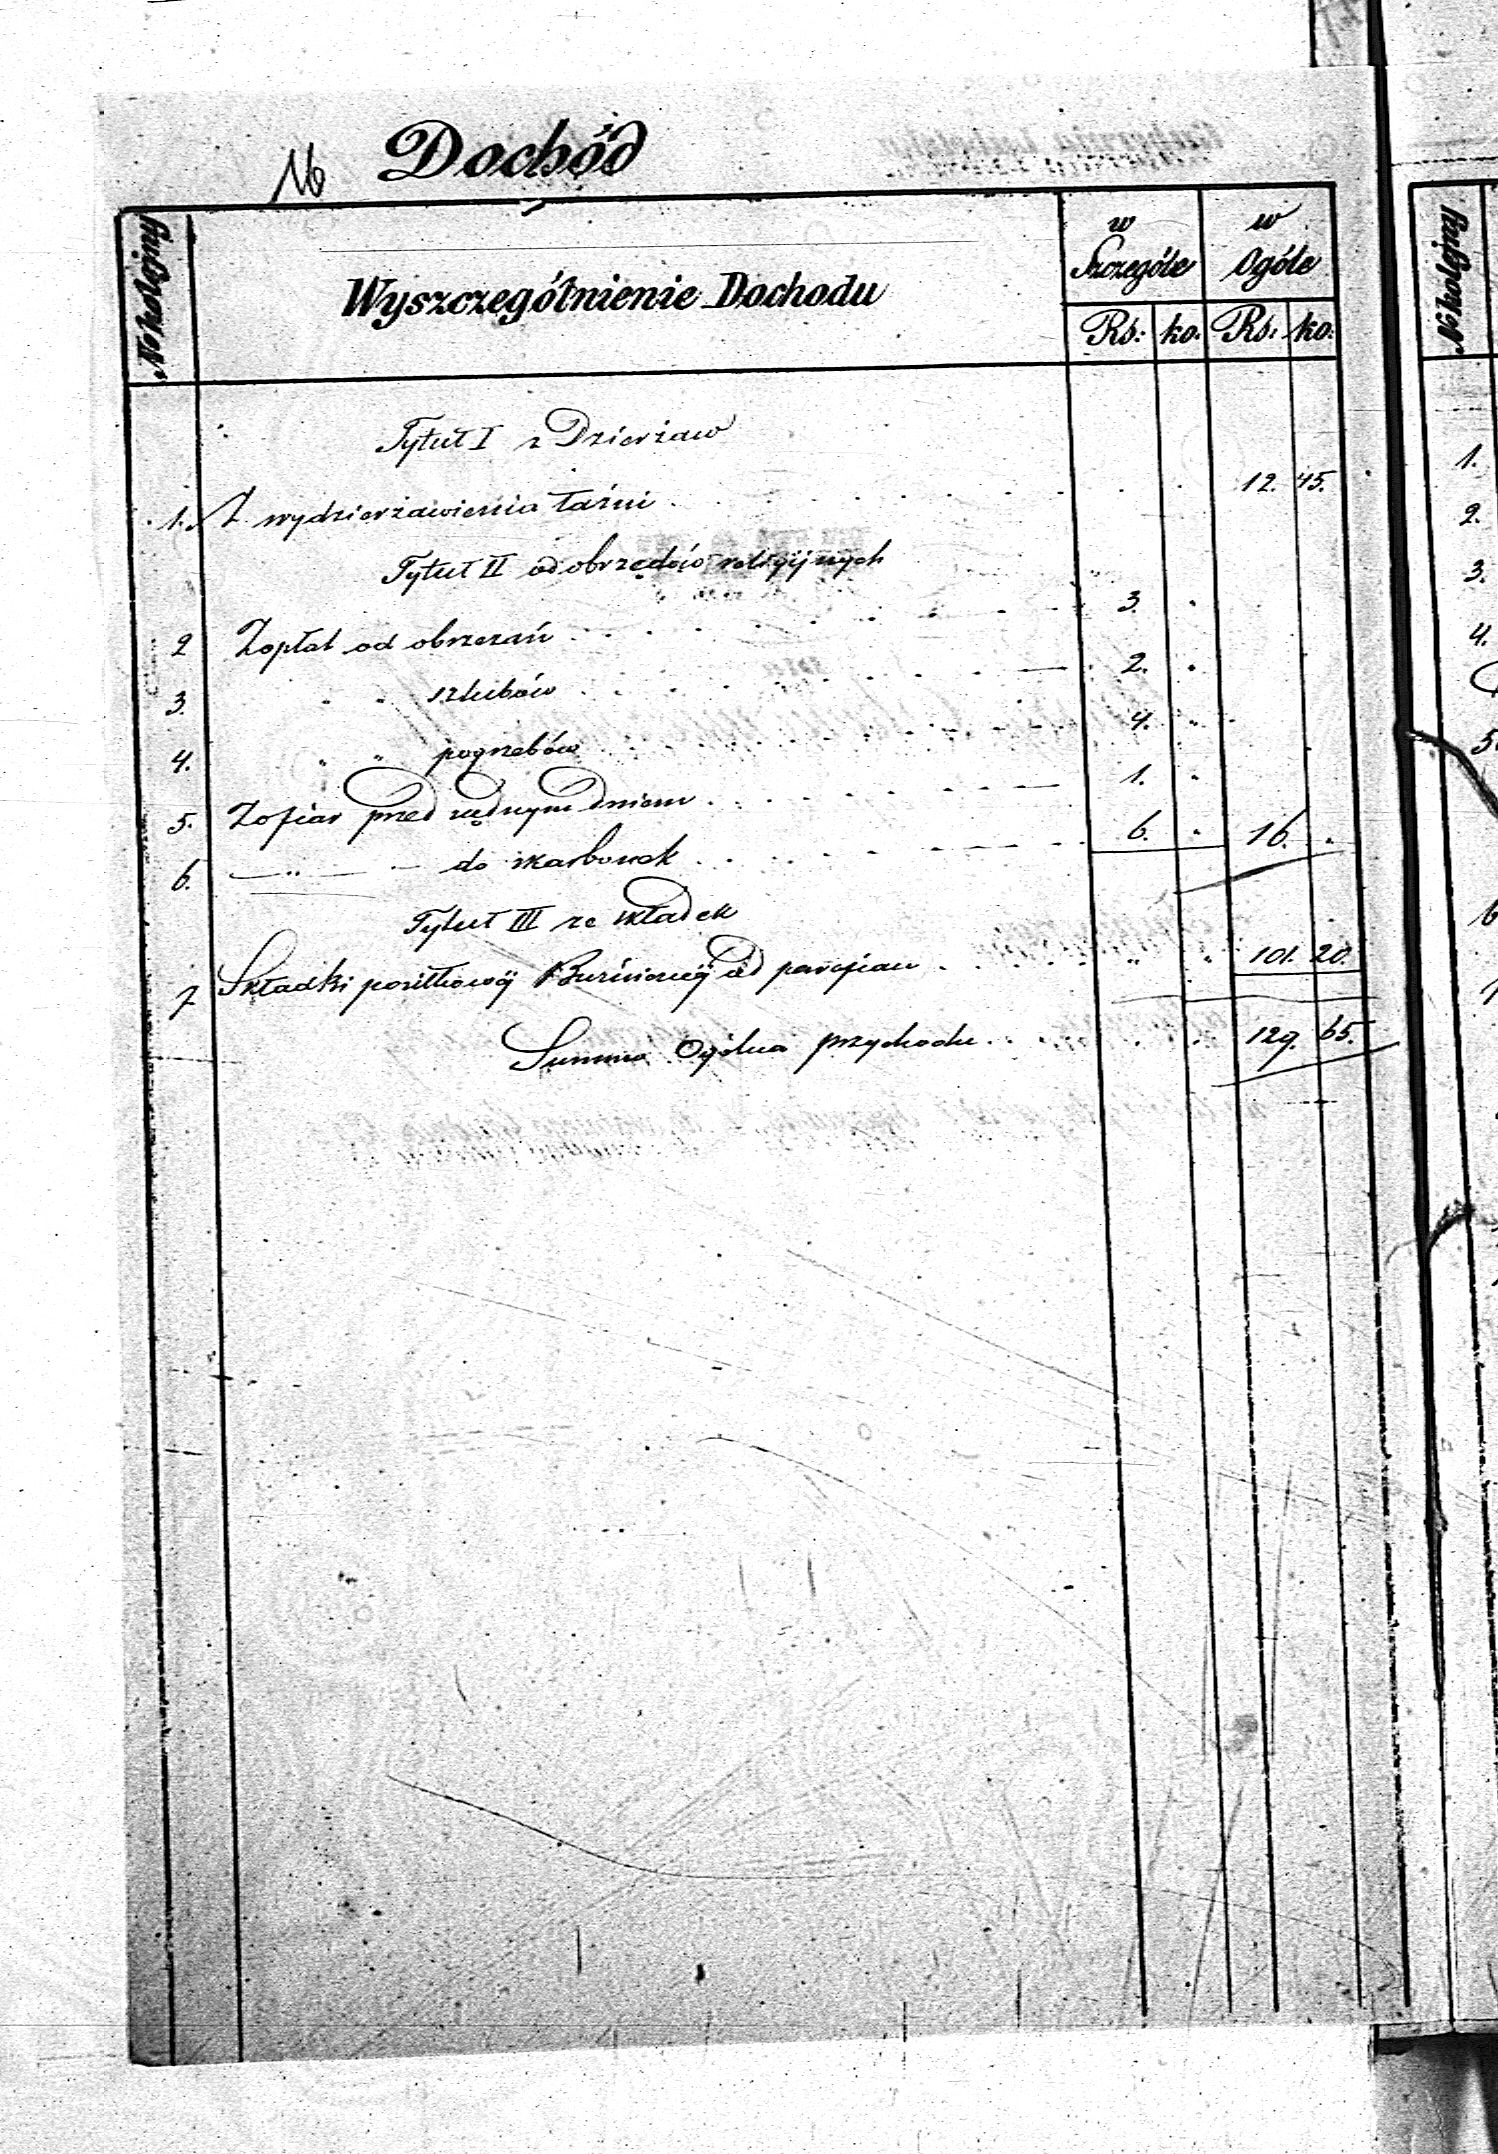 16 Dochód
No kolejny Wyszczególnienie Dochodu w Szczególe w Ogóle
Rs: ko. Rs: ko:
Tytuł I z Dzierżaw
1. Z wydzierżawienia łaźni . . . . 12. 45.
Tytuł II od obrzędów religijnych
2 Zopłat od obrzezań . . . . 3. "
3. " " szlubów . . . . 2. "
4. " " pogrzebów . . . . 4. "
5. Zofiar przed sądnym dniem . . . . 1. "
6. — " — do skarbonek . . . . 6. " 16. "
Tytuł III ze składek
7 Składki posiłkowéj Buźnicznéj od parafian . . . . " " 101. 20.
Summa Ogólna przychodu . . . . 129. 65.
No kolejny
1.
2.
3.
4.
5
6